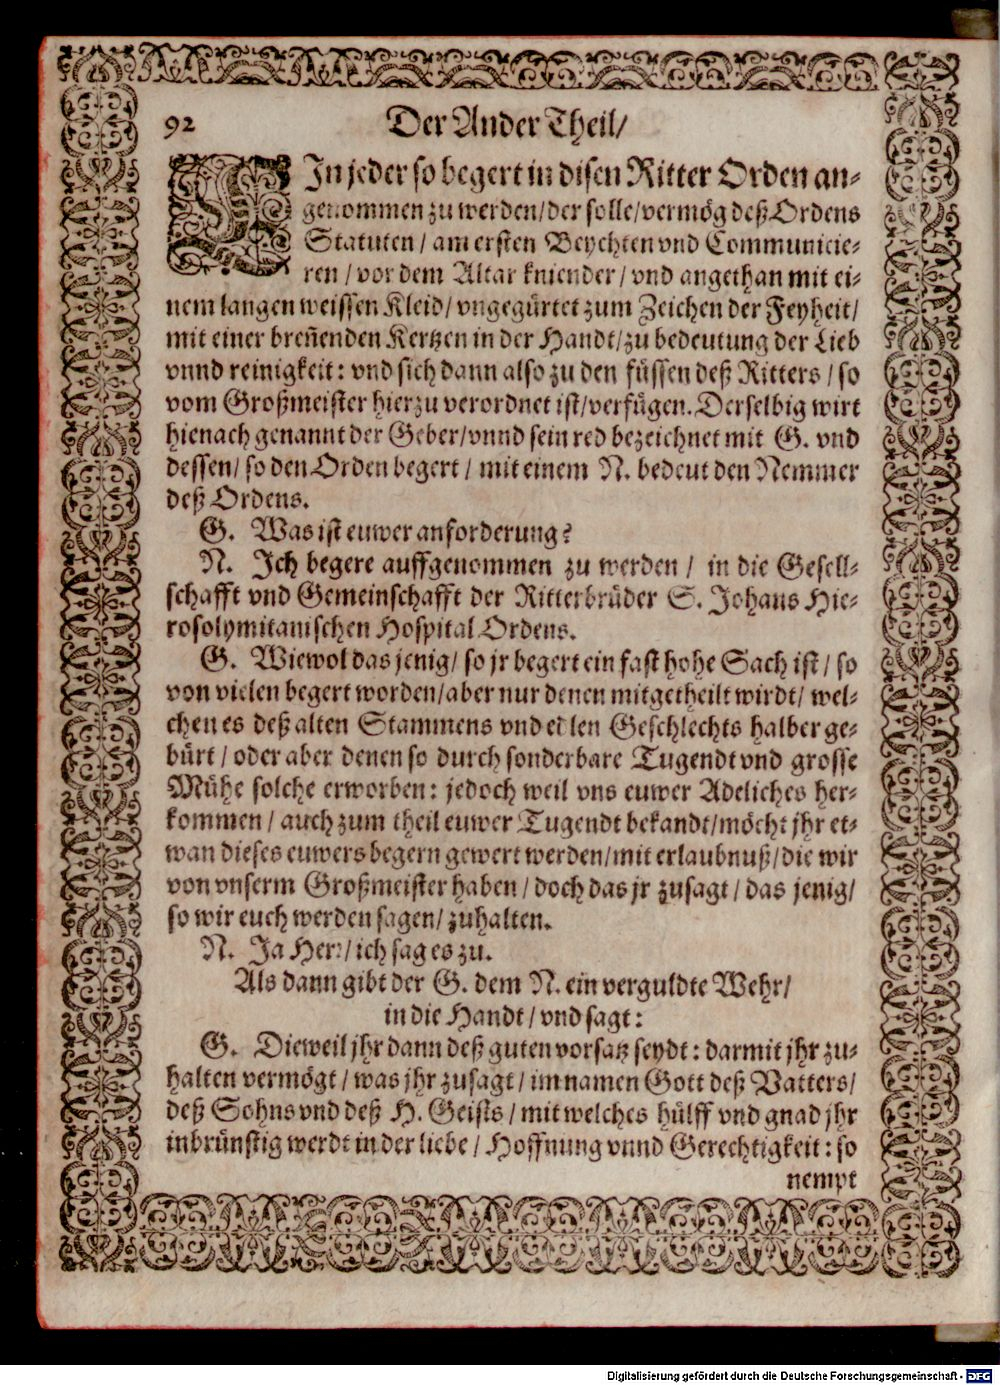 92 Der Ander Theil/
EIn jeder so begert in disen Ritter Orden an-
genommen zu werden/der solle/vermög deß Ordens
Statuten / am ersten Beychten vnd Communicie-
ren / vor dem Altar kniender / vnd angethan mit ei-
nem langen weissen Kleid/ vngegürtet zum Zeichen der Feyheit/
mit einer breñenden Kertzen in der Handt/zu bedeutung der Lieb
vnnd reinigkeit: vnd sich dann also zu den füssen deß Ritters / so
vom Großmeister hierzu verordnet ist/verfügen. Derselbig wirt
hienach genannt der Geber/vnnd sein red bezeichnet mit G. vnd
dessen/ so den Orden begert / mit einem N. bedeut den Nemmer
deß Ordens.
G. Was ist euwer anforderung?
N. Ich begere auffgenommen zu werden / in die Gesell-
schafft vnd Gemeinschafft der Ritterbrüder S. Johans Hie-
rosolymitanischen Hospital Ordens.
G. Wiewol das jenig/ so jr begert ein fast hohe Sach ist/ so
von vielen begert worden/aber nur denen mitgetheilt wirdt/ wel-
chen es deß alten Stammens vnd edlen Geschlechts halber ge-
bürt / oder aber denen so durch sonderbare Tugendt vnd grosse
Mühe solche erworben: jedoch weil vns euwer Adeliches her-
kommen / auch zum theil euwer Tugendt bekandt/möcht jhr et-
wan dieses euwers begern gewert werden/mit erlaubnuß/die wir
von vnserm Großmeister haben / doch das jr zusagt / das jenig/
so wir euch werden sagen/ zuhalten.
N. Ja Herr/ ich sag es zu.
Als dann gibt der G. dem N. ein verguldte Wehr/
in die Handt / vnd sagt:
G. Dieweil jhr dann deß guten vorsatz seydt: darmit jhr zu-
halten vermögt / was jhr zusagt / im namen Gott deß Vatters/
deß Sohns vnd deß H. Geists / mit welches hülff vnd gnad jhr
inbrünstig werdt in der liebe / Hoffnung vnnd Gerechtigkeit: so
nempt
Digitalisierung gefördert durch die Deutsche Forschungsgemeinschaft - DFG